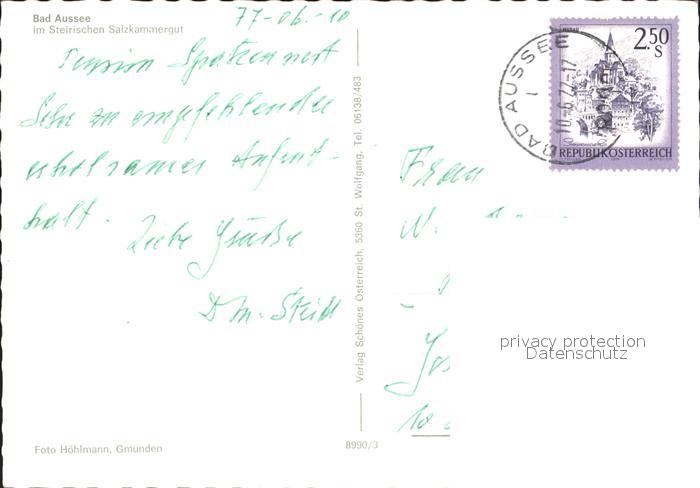 Bad Aussee
im Steirischen Salzkammergut
77-06.-10
Pension Spatzennest
Sehr zu empfehlender
erholsamer Aufent-
halt.
Liebe Grüße
Foto Höhlmann, Gmunden
Verlag Schönes Österreich, 5360 St. Wolfgang, Tel. 06138/483
8990/3
2.50
S
REPUBLIK ÖSTERREICH
BAD AUSSEE
10.-6.77-17
Frau
privacy protection
Datenschutz